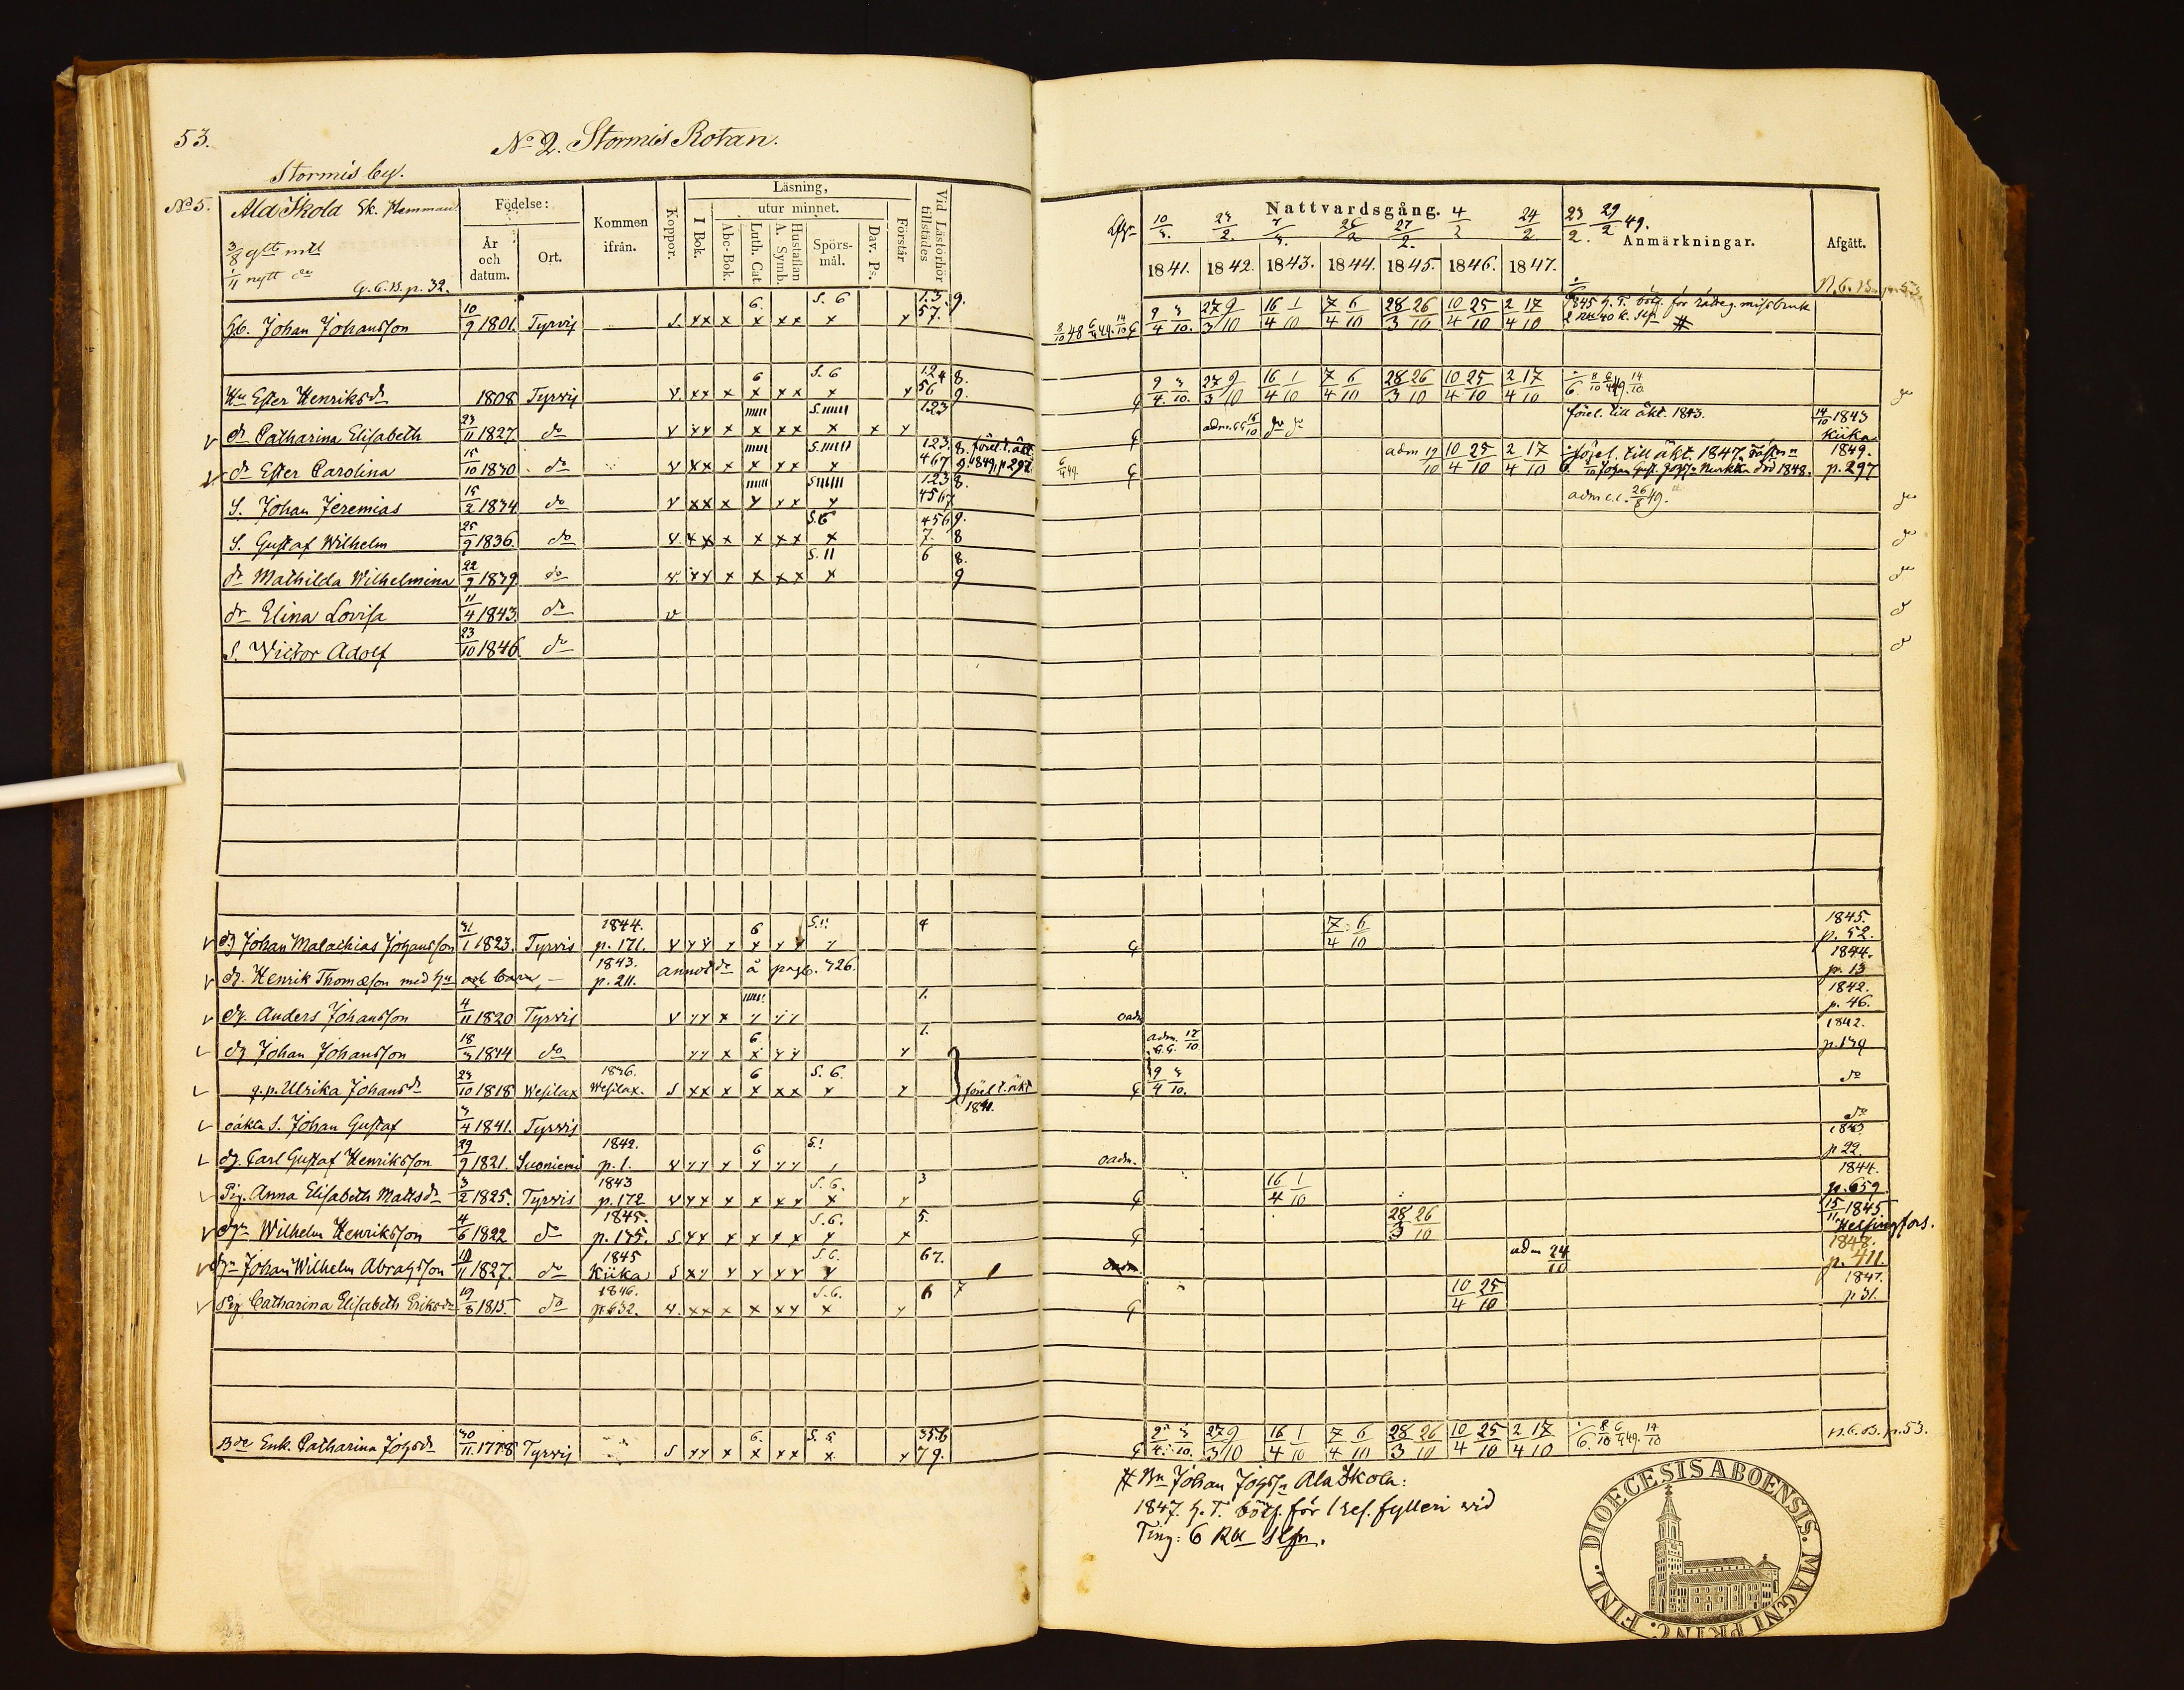 53.
No 2. Stormis Rotan.
Stormis by.
No 5.
Ala Skola Sk. Hemman
3/8 glt mtl
1/4 nytt do
G.C.B. p. 32.
Födelse:
År och datum.
Ort.
Kommen ifrån.
Koppor.
Läsning,
I Bok.
utur minnet.
Abc-Bok.
Luth. Cat
Hustaflan A. Symb.
Spörsmål.
Dav. Ps.
Förstår
Vid Läsförhör tillstädes
Nattvardsgång.
10/3. 23/2. 26/2 27/2. 4/2 24/2 23/2. 29/2 49.
1841. 1842. 1843. 1844. 1845. 1846. 1847.
Anmärkningar.
Afgått.
N.C.B. p. 53
Hb. Johan Johansson 10/9 1801. Tyrvis S. xx x 6 x xx S. 6 x x 1.3 57. 9. 8/10 48 6/4 49. 14/10 9/4 3/10. 27/3 9/10 16/4 1/10 7/4 6/10 28/3 26/10 10/4 25/10 2/4 17/10 1845 h. T. bötf. för missbruk 2 Rbl 40 k. slfr #
Hu Ester Henriksdr 1808 Tyrvis v xx x 6 x xx S. 6 x x 124 56 8. 9. 9/4. 3/10. 27/3 9/10 16/4 1/10 7/4 6/10 28/3 26/10 10/4 25/10 2/4 17/10 8/10 6/4 49. 14/10. do
dr Catharina Elisabeth 23/11 1827. do v xx x x xx S. x x x 123 adm. 16/10 förel. till äkt. 1843. 14/10 1843 Kiika
dr Ester Carolina 15/10 1830. do v xx x x xx S. x 123. 467 8. 9. förel. t. äkt. 1849, p 297. 6/4 49. adm 19/10 10/4 25/10 2/4 17/10 förel. till äkt. 1847. Johan Gust. död 1848. 1849. p. 297
S. Johan Jeremias 15/2 1834 do v xx x x xx x 123 4567 8. adm c.c. 26/8 49. do
S. Gustaf Wilhelm 25/9 1836. do v. xx x x xx S.6 x 456 7. 9. 8 do
dr Mathilda Wilhelmina 22/9 1839 do v. xx x x xx S. 11 x 6 8. 9 do
dr Elina Lovisa 11/4 1843. do v do
S. Wictor Adolf 23/10 1846 do do
dg Johan Malachias Johansson 31/1 1823. Tyrvis 1844. p. 171. v xx x 6 x xx x 4 7/4 6/10 1845. p. 52.
dg. Henrik Thomæson med hu och barn, 1843. p. 211. annot. de å pag. 326. 1844. p. 13
dg. Anders Johansson 4/11 1820 Tyrvis v xx x x xx 1. oadm 1842. p. 46.
dg Johan Johansson 18/3 1814 do xx x 6 x xx x 1. adm. 17/10 1842. p. 139
g. p. Ulrika Johansdr 23/10 1818 Wesilax 1836. Wesilax. S xx x 6 x xx S. 6. x x förel. t. äkt 1841. 9/4 3/10. do
oäkta S. Johan Gustaf 3/4 1841. Tyrvis do
dg. Carl Gustaf Henriksson 29/9 1821. Suoniemi 1842. p. 1. v xx x 6 x xx oadm. 1843 p 22.
Pig. Anna Elisabeth Mattsdr 3/2 1825. Tyrvis 1843 p. 172 v xx x x xx S. 6. x x 3 16/4 1/10 1844. p. 659
dgn Wilhelm Henriksson 4/6 1822 do 1845. p. 175. S xx x x xx S. 6. x x 5. 28/3 26/10 15/11 1845 Helsingfors.
dgn Johan Wilhelm Abrahsson 1827. do 1845 Kiika S xx x x xx S. 6. x 67. oadm adm 24/10 1848. p. 411.
Pig Catharina Elisabeth Eriksdr 19/8 1815. do 1846. p 632. v. xx x x xx S. 6. x x 6 7 10/4 25/10 1847. p 31.
Bde Enk. Catharina Johsdr 30/11. 1778 Tyrvis S xx x 6. x xx S. 5 x. x 356 79. 9/4. 3/10. 27/3 9/10 16/4 1/10 7/4 6/10 28/3 26/10 10/4 25/10 2/4 17/10 8/10 6/4 49. 14/10 N.C.B. p. 53.
# Bn Johan Johssn Ala Skola:
1847. h. T. bötf. för 1 res. fylleri wid
Ting: 6 Rbl slfr.
DIOECESIS ABOENSIS. MAGNI PRINC. FINL.